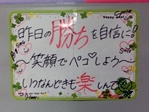 昨日の勝ちを自信に!!
～笑顔でペコしよう～
いつなんどきも楽しんで